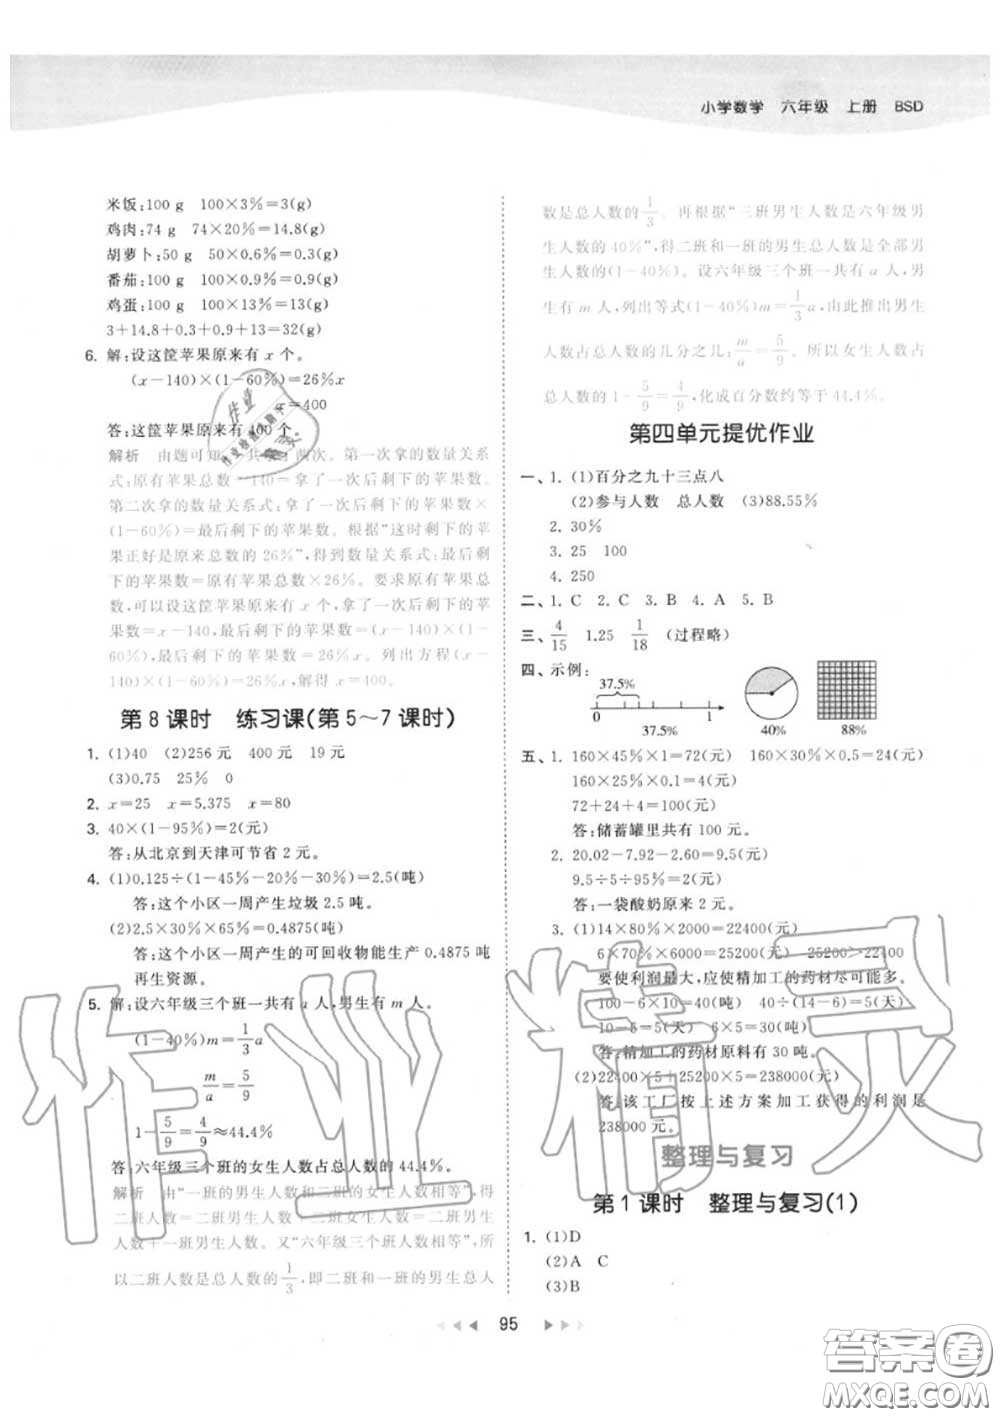 小学数学 六年级 上册 BSD
米饭:100 g 100×3%=3(g)
鸡肉:74 g 74×20%=14.8(g)
胡萝卜:50 g 50×0.6%=0.3(g)
番茄:100 g 100×0.9%=0.9(g)
鸡蛋:100 g 100×13%=13(g)
3+14.8+0.3+0.9+13=32(g)
6. 解:设这筐苹果原来有 x 个。
(x-140)×(1-60%)=26%x
x=400
答:这筐苹果原来有 400 个。
解析 由题可知一共 两次。第一次拿的数量关系
式:原有苹果总数-140=拿了一次后剩下的苹果数。
第二次拿的数量关系式:拿了一次后剩下的苹果数×
(1-60%)=最后剩下的苹果数。根据“这时剩下的苹
果正好是原来总数的 26%”,得到数量关系式:最后剩
下的苹果数=原有苹果总数×26%。要求原有苹果总
数,可以设这筐苹果原来有 x 个,拿了一次后剩下的苹
果数=x-140,最后剩下的苹果数=(x-140)×(1-
60%),最后剩下的苹果数=26%x。列出方程(x-
140)×(1-60%)=26%x,解得 x=400。
第 8 课时 练习课(第 5~7 课时)
1. (1)40 (2)256 元 400 元 19 元
(3)0.75 25% 0
2. x=25 x=5.375 x=80
3. 40×(1-95%)=2(元)
答:从北京到天津可节省 2 元。
4. (1)0.125÷(1-45%-20%-30%)=2.5(吨)
答:这个小区一周产生垃圾 2.5 吨。
(2)2.5×30%×65%=0.4875(吨)
答:这个小区一周产生的可回收物能生产 0.4875 吨
再生资源。
5. 解:设六年级三个班一共有 a 人,男生有 m 人。
(1-40%)m=1/3 a
m/a=5/9
1-5/9=4/9≈44.4%
答:六年级三个班的女生人数占总人数的 44.4%。
解析 由“一班的男生人数和二班的女生人数相等”,得
二班人数=二班男生人数+二班女生人数=二班男生
人数+一班男生人数。又“六年级三个班人数相等”,所
以二班人数是总人数的1/3,即二班和一班的男生总人
数是总人数的1/3。再根据“三班男生人数是六年级男
生人数的 40%”,得二班和一班的男生总人数是全部男
生人数的(1-40%)。设六年级三个班一共有 a 人,男
生有 m 人,列出等式(1-40%)m=1/3 a,由此推出男生
人数占总人数的几分之几:m/a=5/9。所以女生人数占
总人数的 1-5/9=4/9,化成百分数约等于 44.4%。
第四单元提优作业
一、1. (1)百分之九十三点八
(2)参与人数 总人数 (3)88.55%
2. 30%
3. 25 100
4. 250
二、1. C 2. C 3. B 4. A 5. B
三、4/15 1.25 1/18 (过程略)
四、示例:
37.5%
0 1
37.5% 40% 88%
五、1. 160×45%×1=72(元) 160×30%×0.5=24(元)
160×25%×0.1=4(元)
72+24+4=100(元)
答:储蓄罐里共有 100 元。
2. 20.02-7.92-2.60=9.5(元)
9.5÷5÷95%=2(元)
答:一袋酸奶原来 2 元。
3. (1)14×80%×2000=22400(元)
6×70%×6000=25200(元) 25200>22400
要使利润最大,应使精加工的药材尽可能多。
100-6×10=40(吨) 40÷(14-6)=5(天)
10-5=5(天) 6×5=30(吨)
答:精加工的药材原料有 30 吨。
(2)22400×5+25200×5=238000(元)
答:该工厂按上述方案加工获得的利润是
238000 元。
整理与复习
第 1 课时 整理与复习(1)
1. (1)D
(2)A C
(3)B
95
作业精灵
答案圈
MXQE.COM